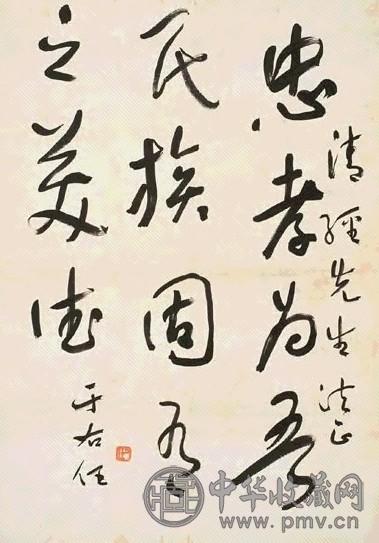 清经先生法正
忠孝为吾
民族固有
之美德
于右任
中华收藏网
www.pmv.cn